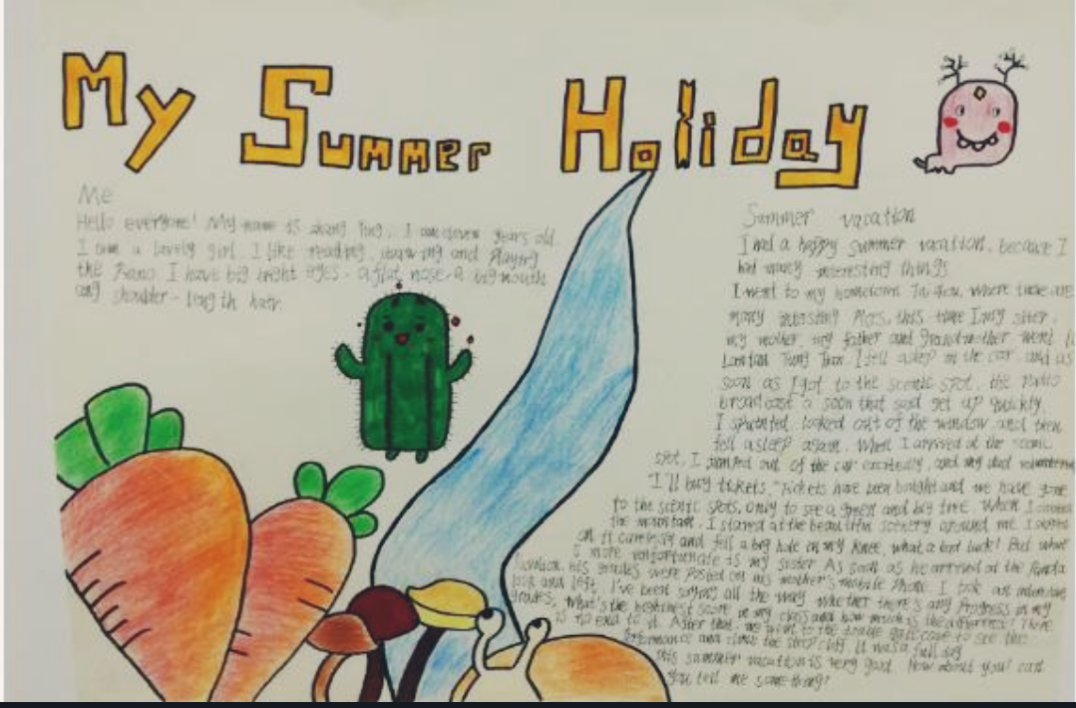 My Summer Holiday
Me
Hello everyone! My name is Ting. I am eleven years old.
I am a lovely girl. I like reading, drawing and playing
the Piano. I have big bright eyes. a flat nose. a big mouth
shoulder-length hair.
Summer vacation
I had a happy summer vacation, because I
had many interesting things
I went to my hometown where there are
many this time I my sister,
my mother, my father and grandmother went to
I fell asleep in the car and as
soon as I got to the scenic spot, the radio
broadcast a soon that said get up quickly.
I looked out of the window and then
fell asleep again. When I arrived at the scenic
spot, I jumped out of the car excitedly, and my dad
"I'll buy tickets." Tickets have been bought and we have gone
to the scenic spots, only to see a green and big tree. When I
the mountain. I stared at the beautiful scenery around me. I
on it and fell a big hole in my knee. what a bad luck! But what
is more unfortunate is my sister As soon as he arrived at the Panda
his grades were posted on his mother's mobile phone. I took an
look and left. I've been saying all the way whether there's any progress in my
grades, What's the highest score in my class and how much is the There
is no end to it. After that, we went to the cave to see the
and climb the step It was a full day
this summer vacation is very good. How about you? can
you tell me something?